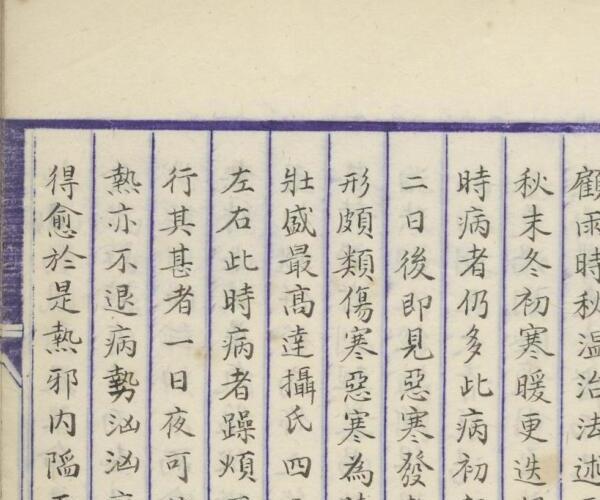 顧雨時秋溫治法述
秋末冬初寒暖更迭
時病者仍多此病初
二日後即見惡寒發
形頗類傷寒惡寒為
壯盛最高達攝氏四
左右此時病者躁煩
行其甚者一日夜可
熱亦不退病勢洶洶
得愈於是熱邪內陷